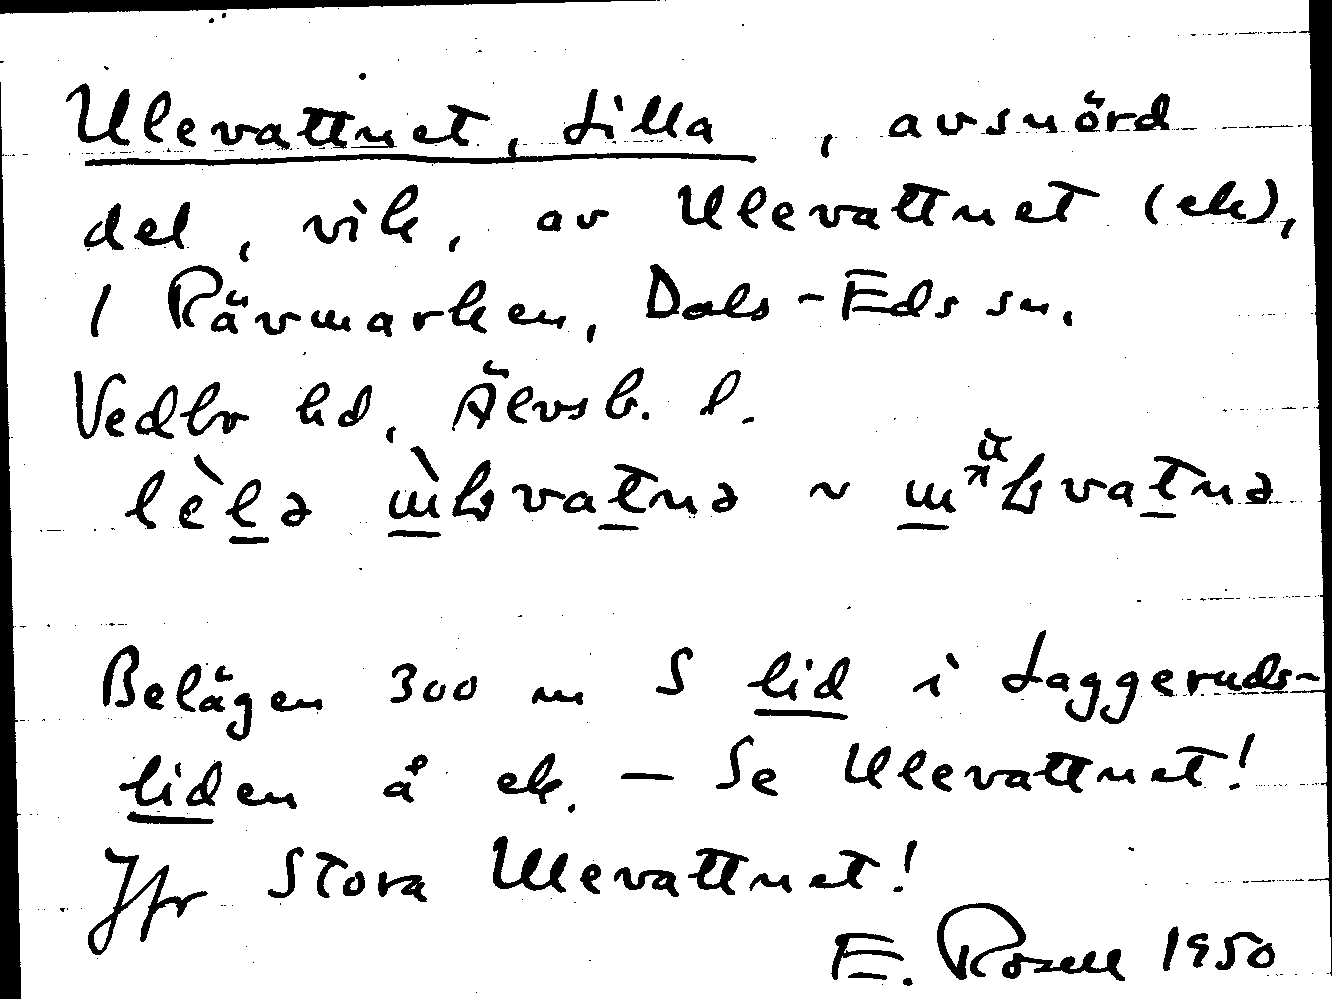 Ulevattnet, Lilla, avsnörd
del, vik, av Ulevattnet (ek),
1 Rävmarken, Dals-Eds sn,
Vedbo hd, Älvsb. l.
Belägen 300 m S lid i Laggeruds-
liden å ek. — Se Ulevattnet!
Jfr Stora Ulevattnet!
E. Rosell 1950